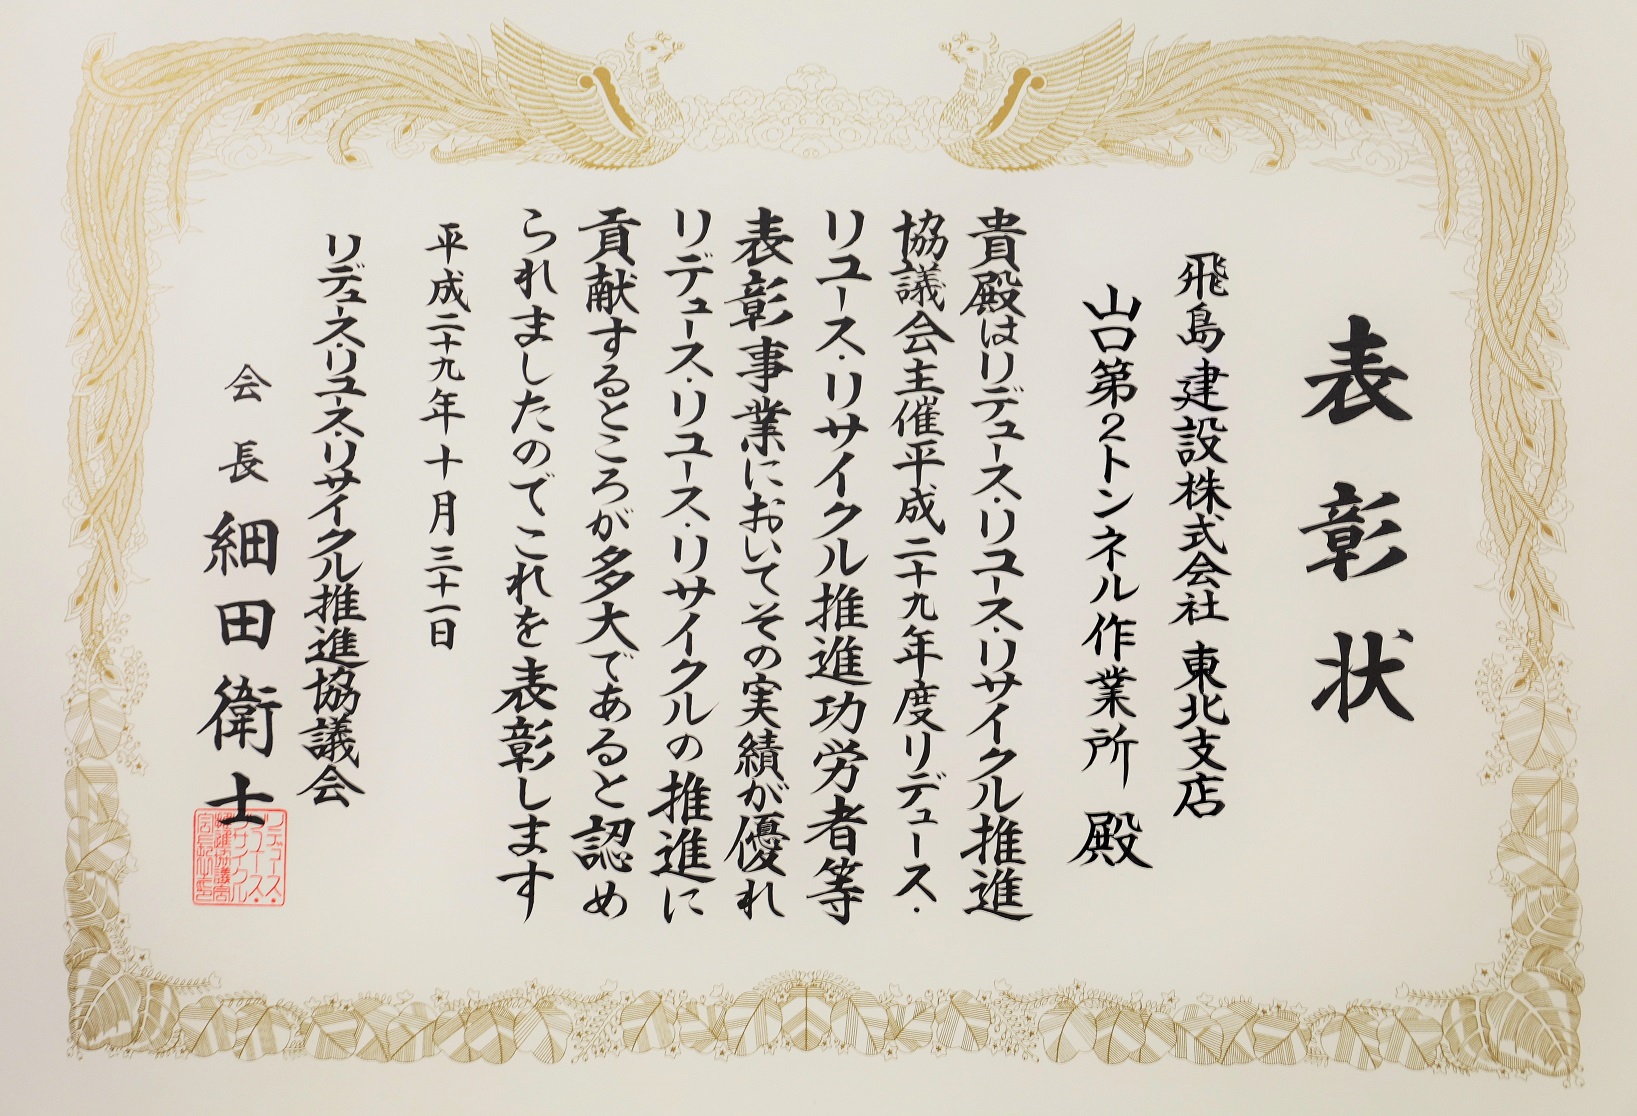 表彰状
飛島建設株式会社 東北支店
山口第2トンネル作業所 殿
貴殿はリデュース・リユース・リサイクル推進
協議会主催平成二十九年度リデュース・
リユース・リサイクル推進功労者等
表彰事業においてその実績が優れ
リデュース・リユース・リサイクルの推進に
貢献するところが多大であると認め
られましたのでこれを表彰します
平成二十九年十月三十一日
リデュース・リユース・リサイクル推進協議会
会長 細田衛士